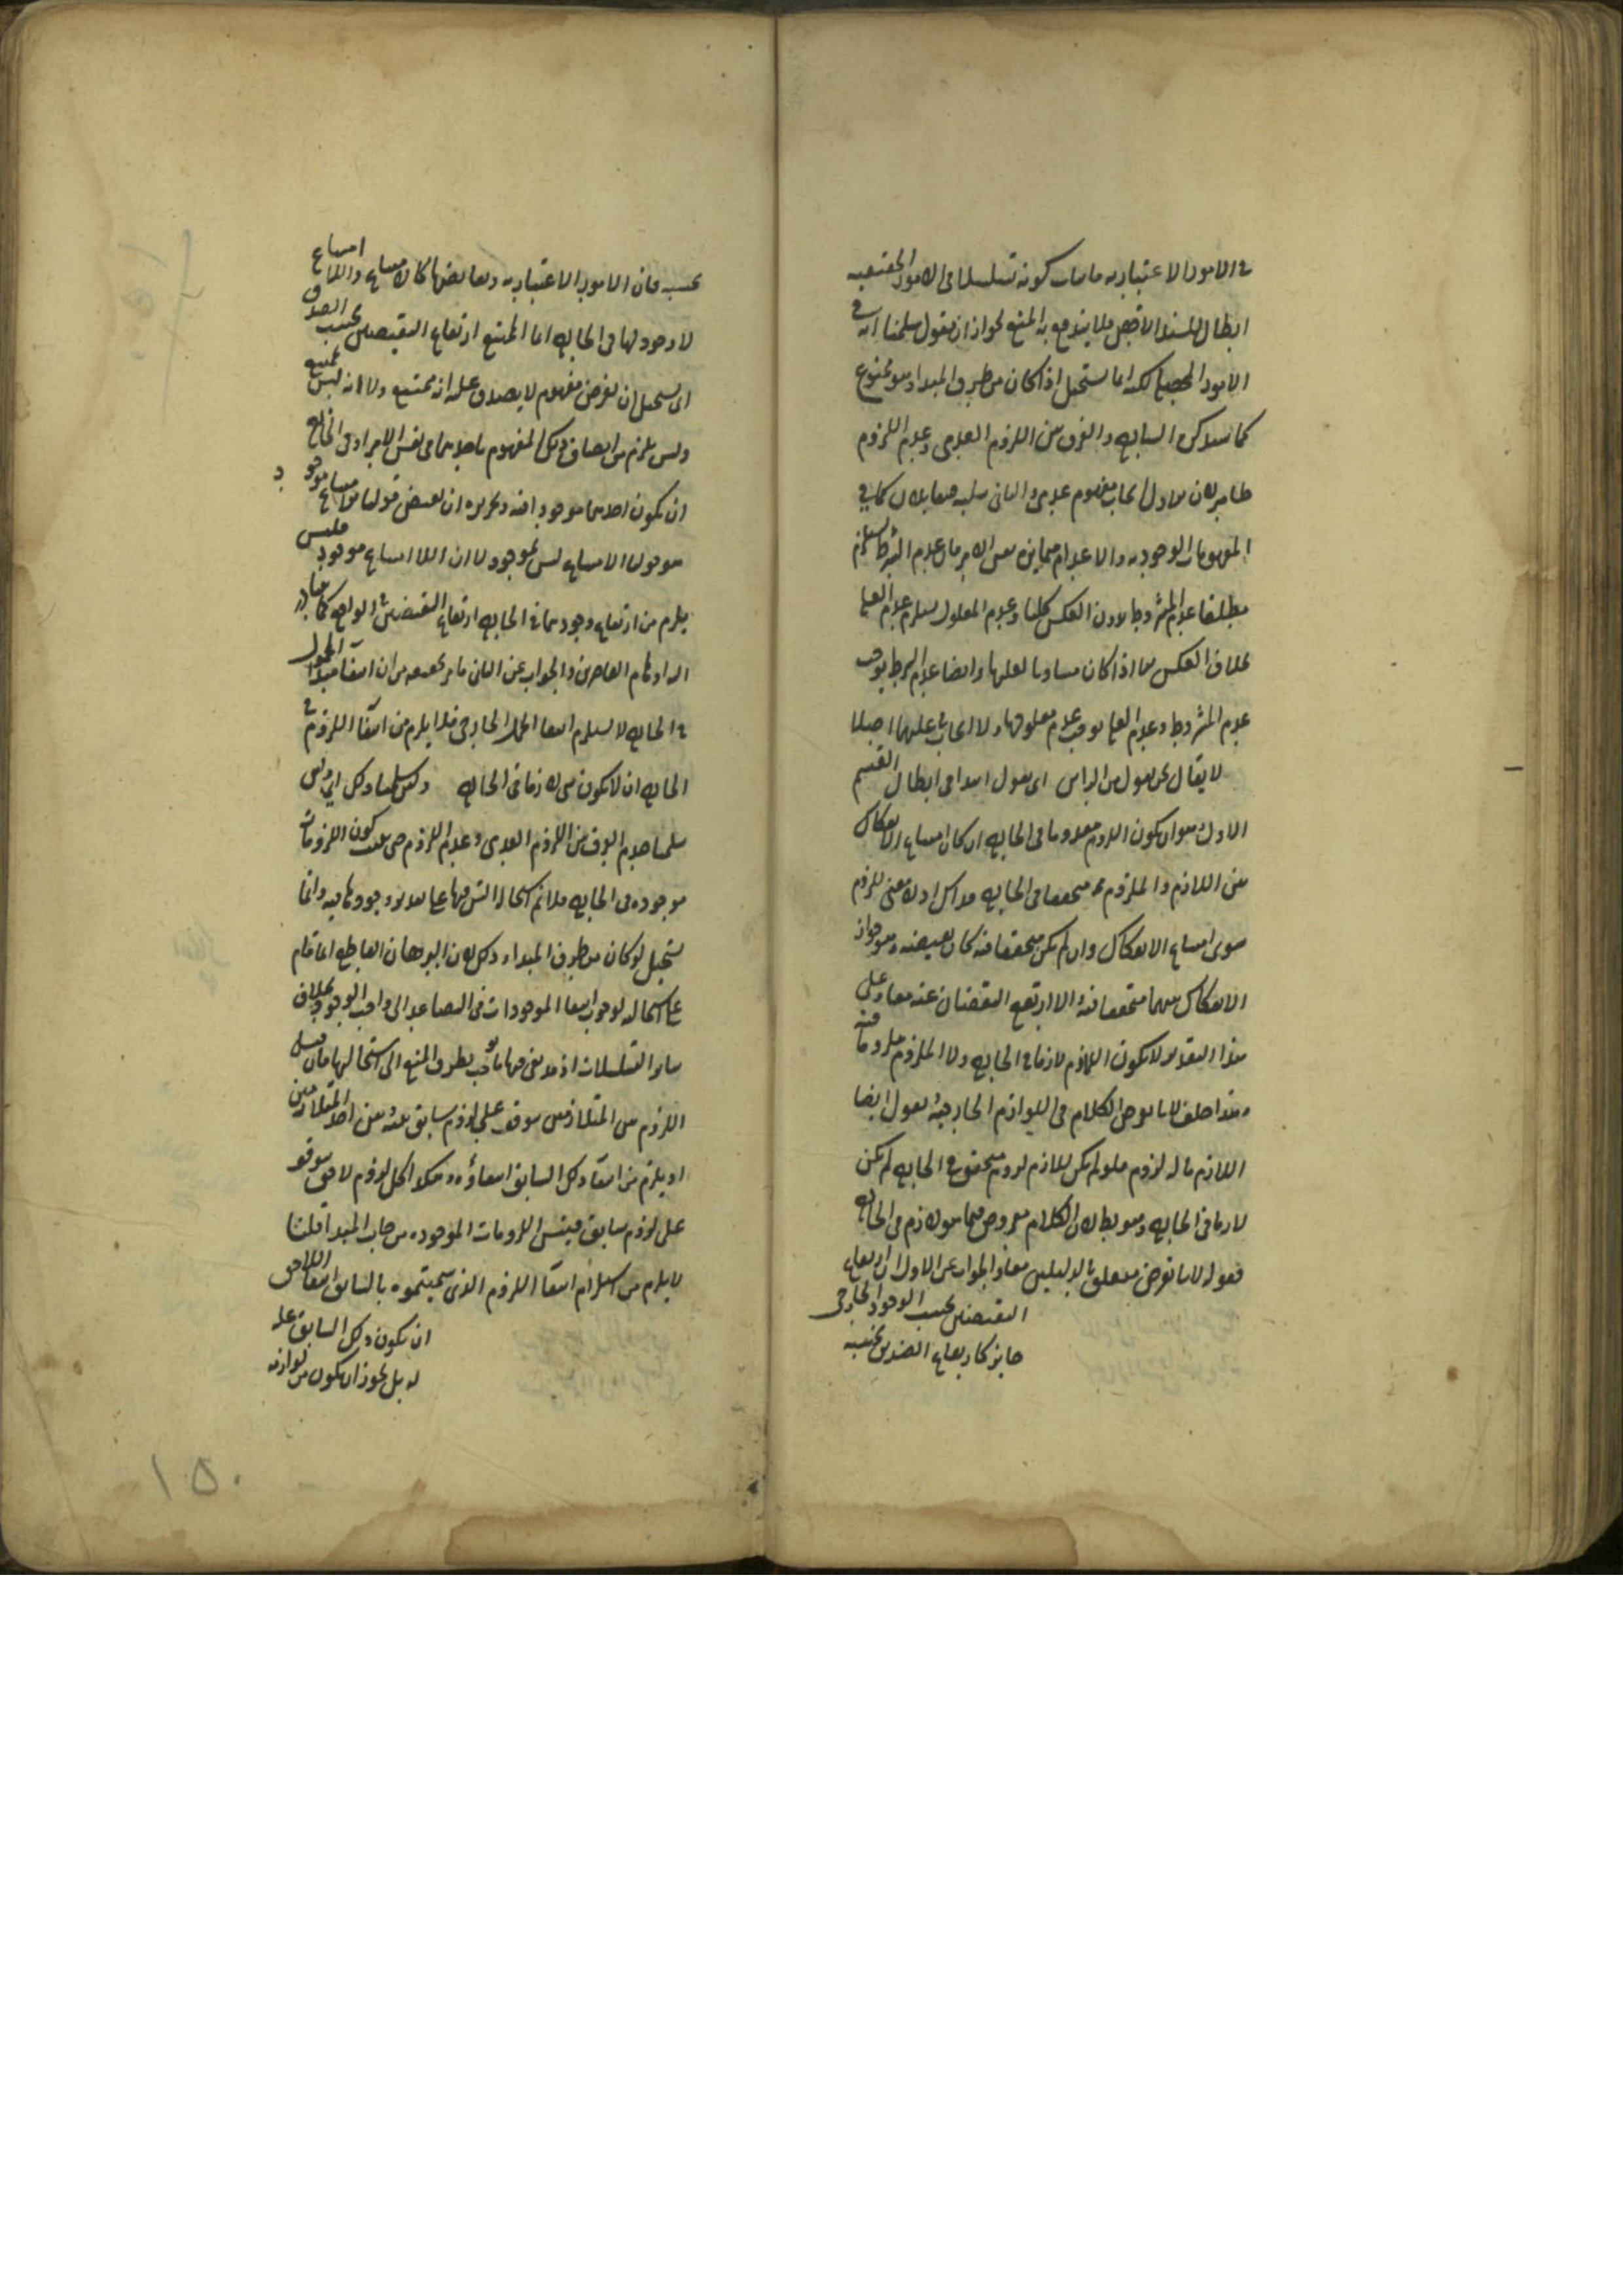 في الامور الاعتبارية فاثبات كونه تسلسلا في الامور الحقيقية
ابطال للسند الاخص فلا يندفع به المنع لجواز ان يقول سلمنا انه في
الامور الحقيقية لكنه انما يستحيل اذا كان من طرف المبدا وهو ممنوع
كما سنذكره السابعه والفرق بين اللزوم العدمي وعدم اللزوم
ظاهر لان الاول ايجاب مفهوم عدمي والثاني سلبه فيتقابلان كما في
المفهومات الوجودية والاعدام متمايزة بحسب الامر فان عدم الشرط يستلزم
مطلقا عدم المشروط بدون العكس كليا وعدم المعلول يستلزم عدم العلة
بخلاف العكس فيما اذا كان مساويا لعلتها وايضا عدم الشرط يوجب
عدم المشروط وعدم العلة يوجب عدم معلولها ولا ايجاب في عليهما اصلا
لا يقال نحن نقول من الراس اي نقول ابتداء في ابطال القسم
الاول وهو ان يكون اللزوم معدوما في الخارج ان كان امتناع الانفكاك
بين اللازم والملزوم متحققا في الخارج فذاك اذ لا معنى للزوم
سوى امتناع الانفكاك وان لم يكن متحققا فيه كان نقيضه وهو جواز
الانفكاك بينهما متحققا فيه والا ارتفع النقيضان عنه معا وعلى
هذا التقدير لا يكون اللازم لازما في الخارج ولا الملزوم ملزوما فيه
هذا خلف لانا نفرض الكلام في اللوازم الخارجية ونقول ايضا
اللازم ما له لزوم فلو لم يكن للازم لزوم متحقق في الخارج لم يكن
لازما في الخارج وهو بط لان الكلام مفروض فيما هو لازم في الخارج
فقوله لانا نفرض متعلق بالدليلين معا والجواب عن الاول ان ارتفاع
النقيضين بحسب الوجود الخارجي
جايز كارتفاع الضدين بحسبه
بحسبه فان الامور الاعتبارية ونقايضها كالامتناع واللا امتناع
لا وجود لها في الخارج انما الممتنع ارتفاع النقيضين بحسب الصدق
اي يستحيل ان نفرض مفهوم لا يصدق عليه انه ممتنع ولا انه ليس بممتنع
وليس يلزم من اتصاف ذلك المفهوم باحدهما في نفس الامر او في الخارج
ان يكون احدهما موجودا فيه وتحريره ان نقيض قولنا الامتناع موجود
هو قولنا الامتناع ليس بموجود لا ان اللا امتناع موجود فليس
يلزم من ارتفاع وجودهما في الخارج ارتفاع النقيضين في الواقع كما يتبادر
اليه اوهام القاصرين والجواب عن الثاني ما مر تحقيقه من ان انتفاء مبدا المحمول
في الخارج لا يستلزم انتفاء الحمل الخارجي فلا يلزم من انتفاء اللزوم في
الخارج ان لا يكون شيء لازما في الخارج ولئن سلمنا ذلك اي ولئن
سلمنا عدم الفرق بين اللزوم العدمي وعدم اللزوم حتى يثبت كون اللزومات
موجودة في الخارج فلا نم استحالة التس فيها على تقدير وجودها فيه وانما
يستحيل لو كان من طرف المبدا وذلك لان البرهان القاطع انما قام
على استحالته لوجوب انتهاء الموجودات في التصاعد الى واجب الوجود بخلاف
ساير التسلسلات اذ قد بقي فيها ما يوجب تطرق المنع الى استحالتها فان قيل
اللزوم بين المتلازمين موقوف على لزوم سابق بينه وبين احد المتلازمين
اذ يلزم من انتفاء ذلك السابق انتفاؤه وهكذا كل لزوم لاحق موقوف
على لزوم سابق فيتس اللزومات الموجودة من جانب المبدا قلنا
لا يلزم من استلزام انتفاء اللزوم الذي سميتموه بالسابق انتفاء اللاحق
ان يكون ذلك السابق علة
له بل يجوز ان يكون من لوازمه
١٥٠